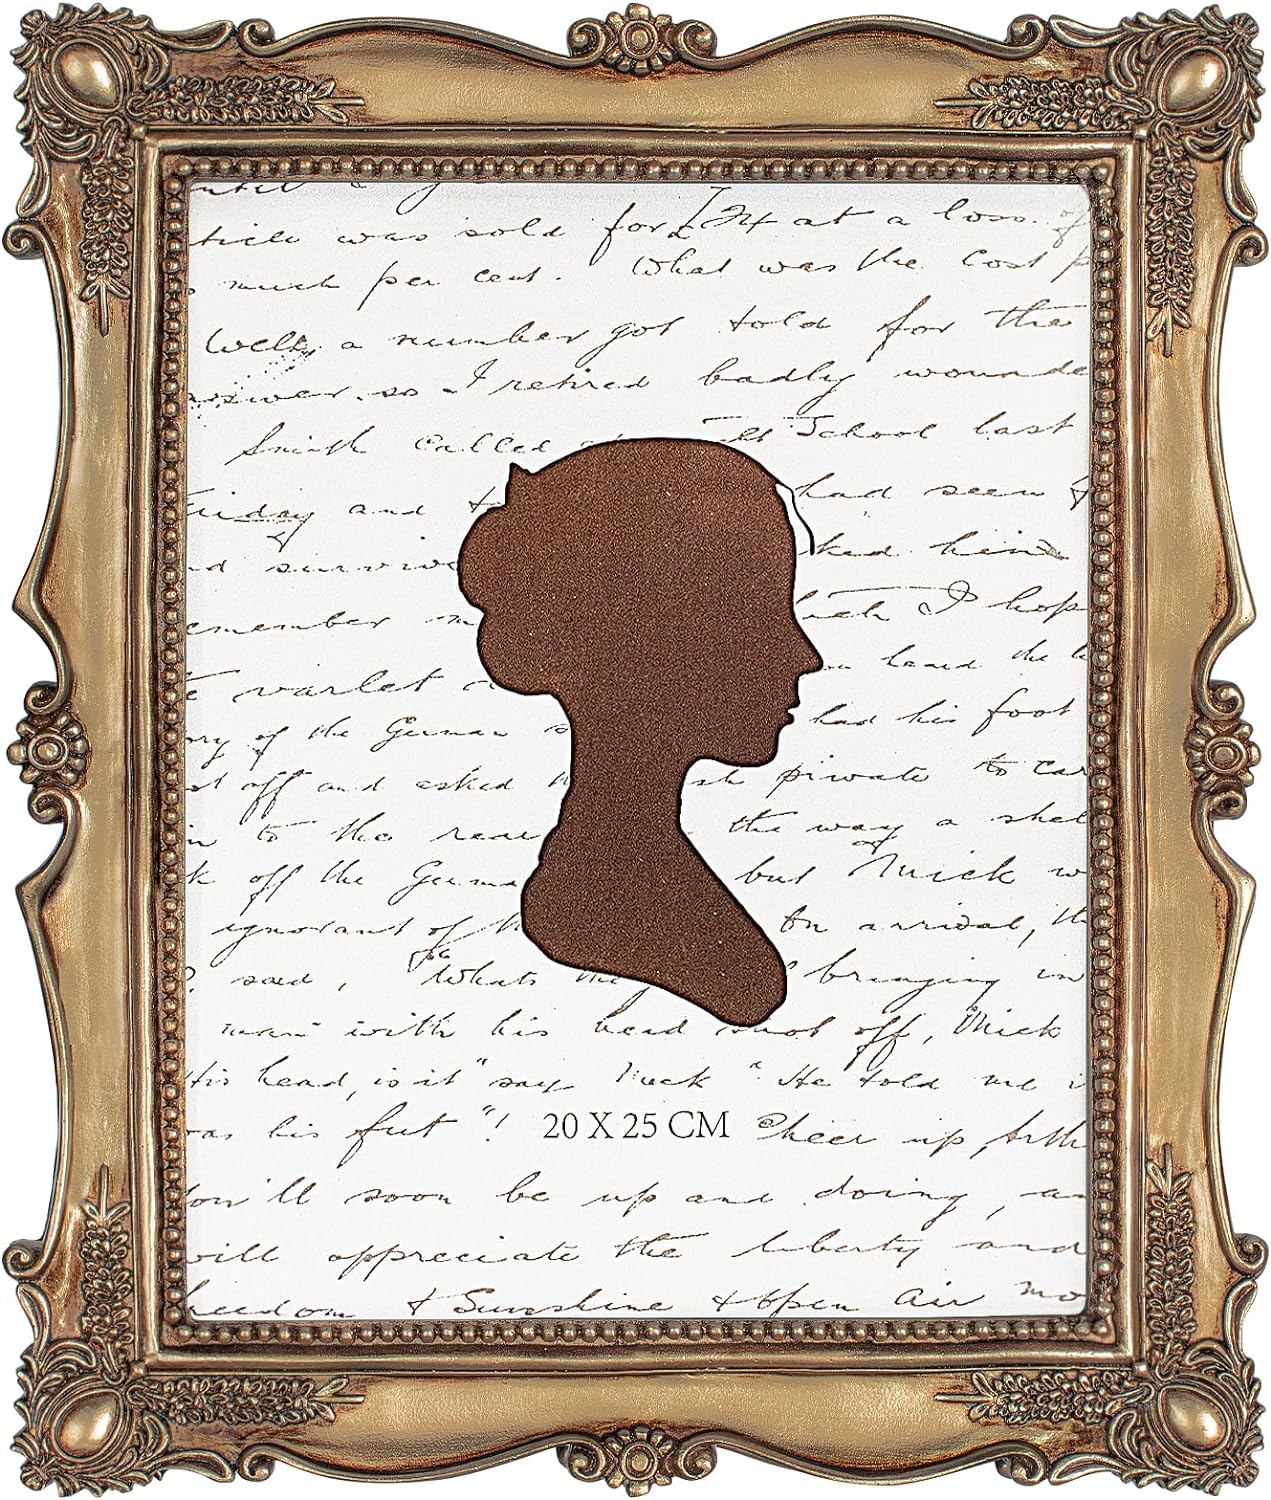 until a
ticle was sold for £24 at a loss of
much per cent. What was the Cost
Well, a number got told for the
answer. so I retired badly wounde
Smith called at School last
Friday and had seen
d surviv ked him
emember which I hop
e varlet you heard the
ory of the German had his foot
st off and asked sh private to car
in to the rear the way a shel
k off the Germa but Mick w
ignorant of the On arrival, th
? said, "Whats the bringing in
man with his head shot off, Mick
His head, is it" say Mick "He told me i
was his fut"! 20 X 25 CM Cheer up, Arth
ou'll soon be up and doing, an
will appreciate the liberty and
reedom & Sunshine & open air mo